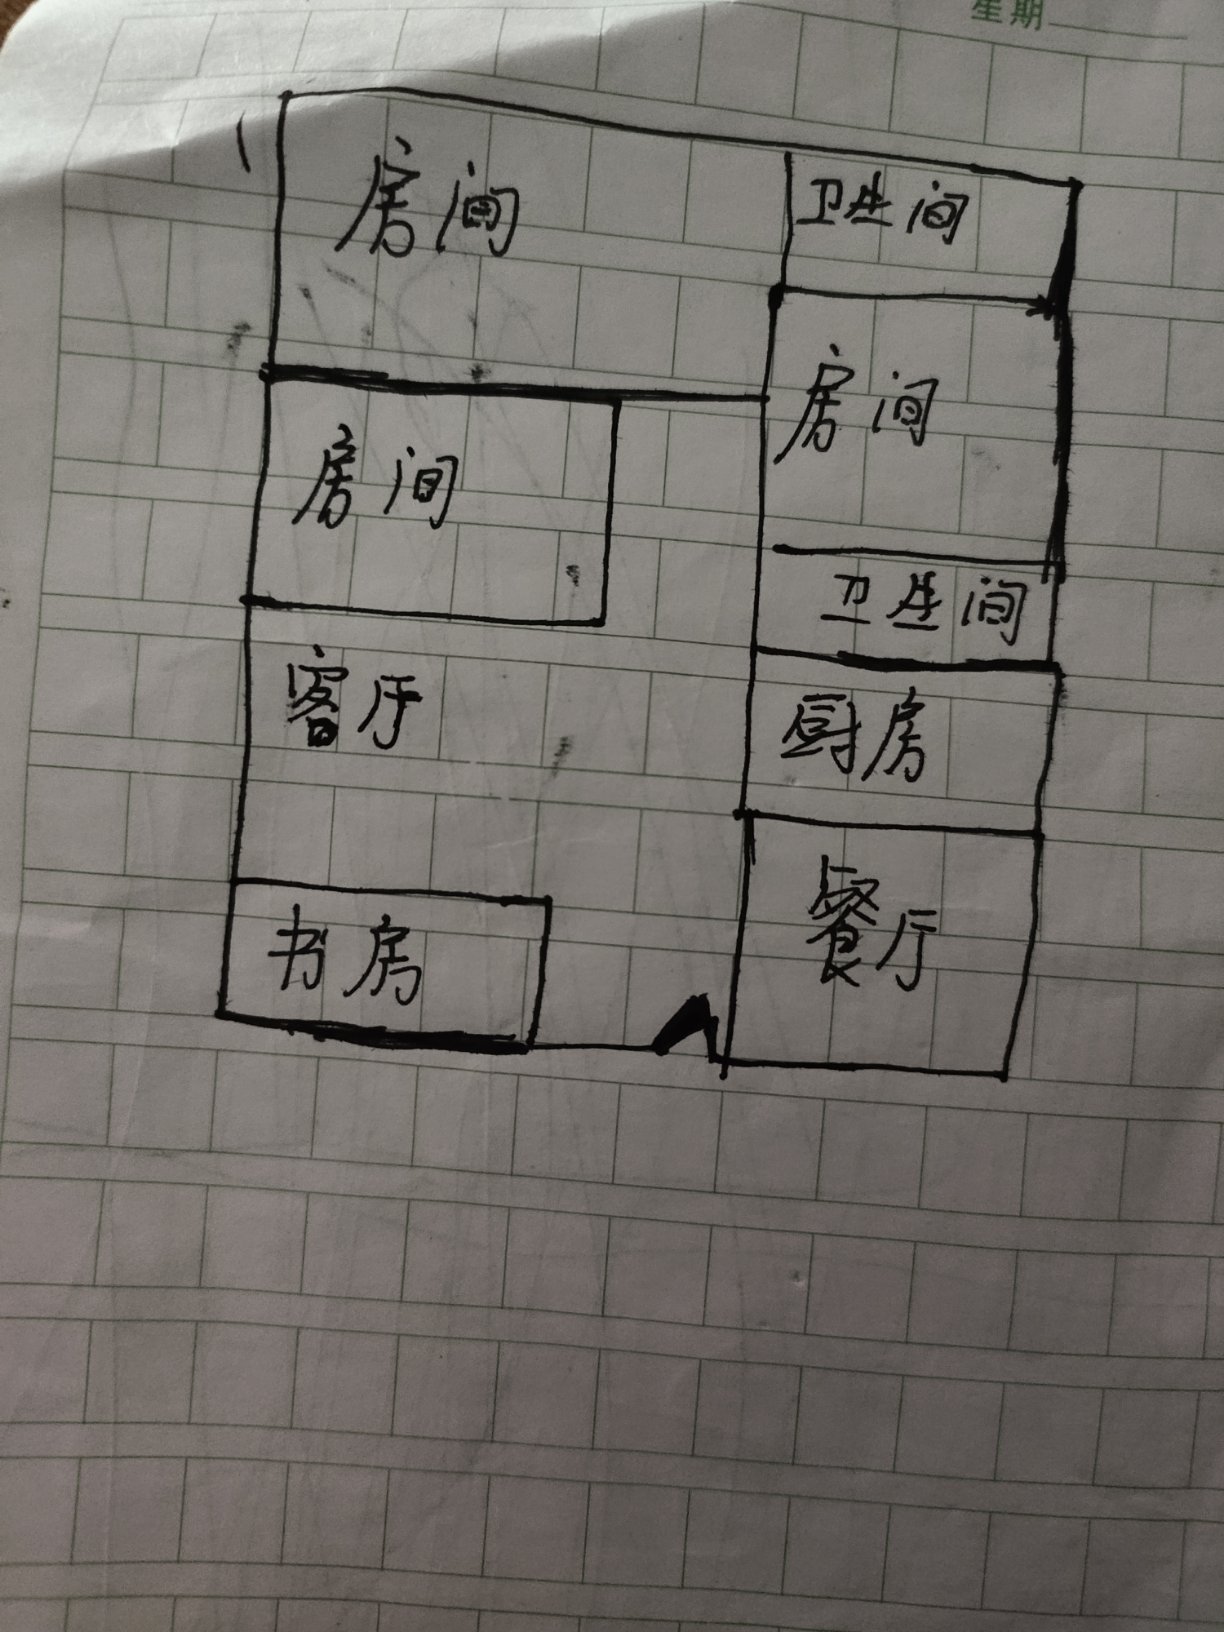 星期
房间
卫生间
房间
房间
卫生间
客厅
厨房
书房
餐厅